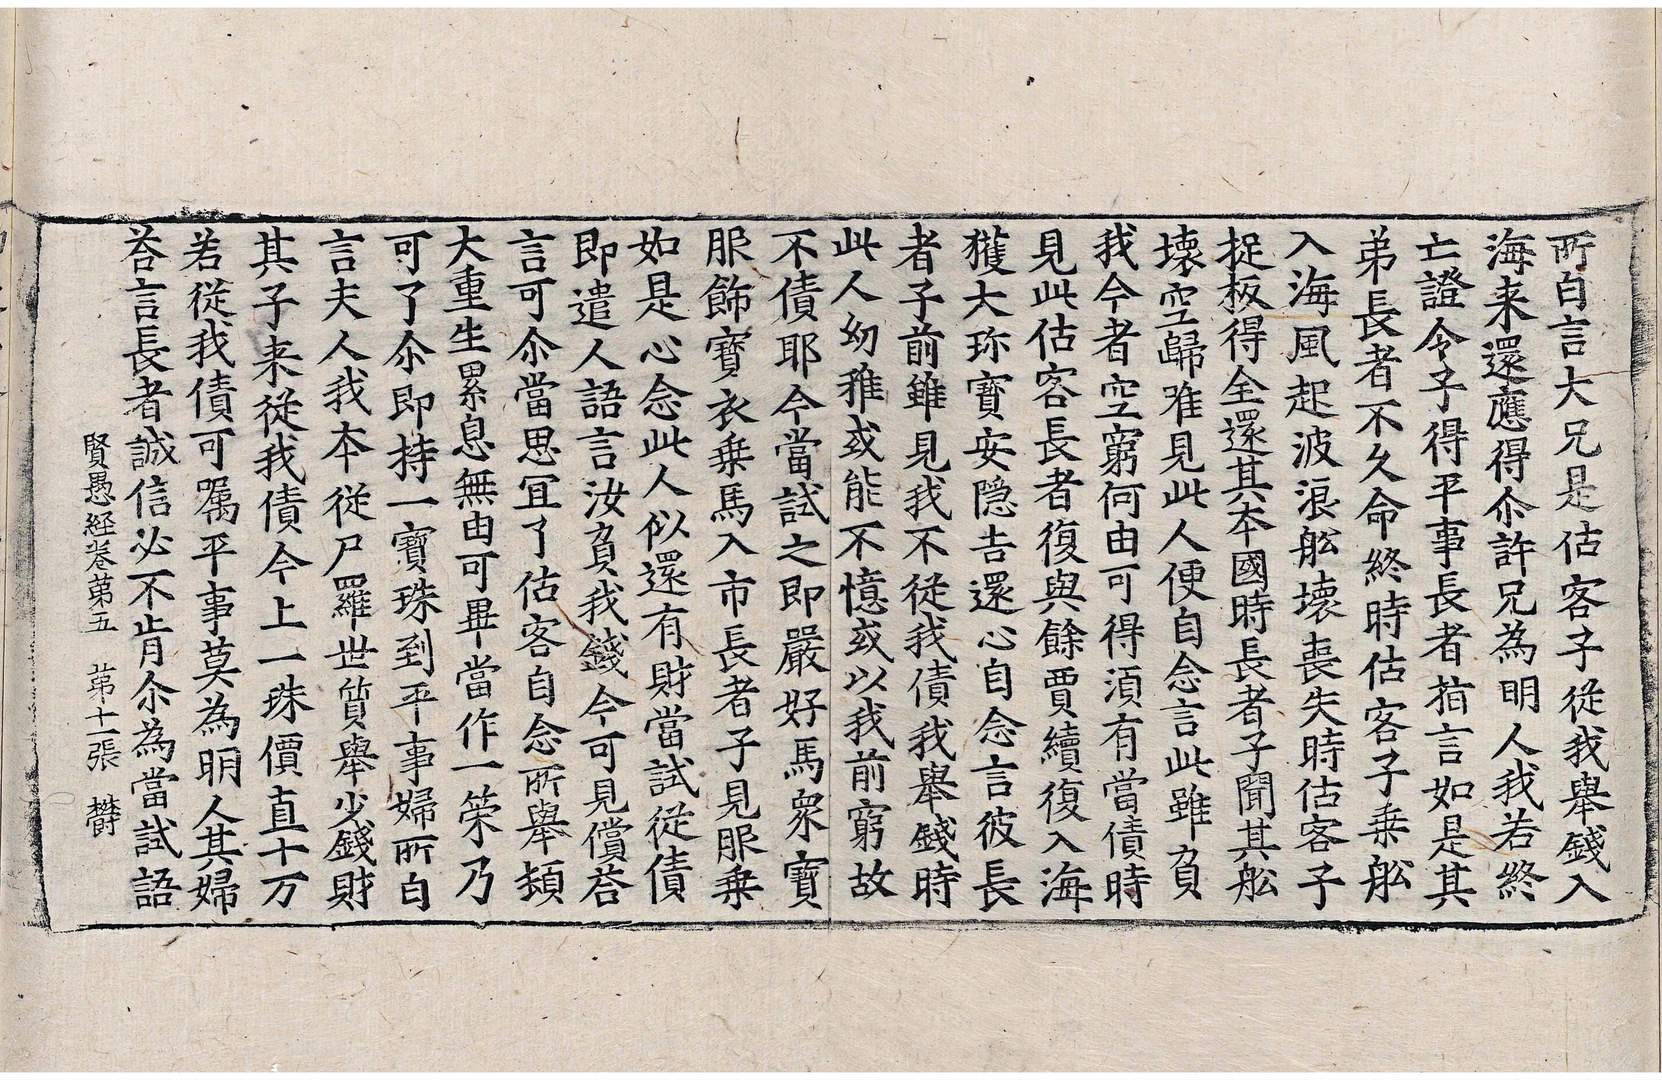 所白言大兄是估客子從我舉錢入
海来還應得尒許兄為明人我若終
亡證令子得平事長者指言如是其
弟長者不久命終時估客子乗舩
入海風起波浪舩壊喪失時估客子
捉板得全還其本國時長者子聞其舩
壊空歸唯見此人便自念言此雖負
我今者空窮何由可得湏有當債時
見此估客長者復與餘賈續復入海
獲大珎寶安隠吉還心自念言彼長
者子前雖見我不從我債我舉錢時
此人幼稚或能不憶或以我前窮故
不債耶今當試之即嚴好馬衆寶
服飾寶衣乗馬入市長者子見服乗
如是心念此人似還有財當試從債
即遣人語言汝負我錢今可見償荅
言可尒當思冝了估客自念所舉頬
大重生累息無由可畢當作一筞乃
可了尒即持一寶珠到平事婦所白
言夫人我本從尸羅世質舉少錢財
其子来從我債今上一珠價直十万
若從我債可囑平事莫為明人其婦
荅言長者誠信必不肯尒為當試語
賢愚経卷第五　苐十一張　欎